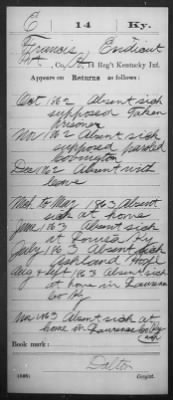 E 14 Ky.
Francis Endicut
Pvt, Co. H, 14 Reg't Kentucky Inf.
Appears on Returns as follows:
Oct 1862 Absent sick
supposed Taken
prisoner
Nov 1862 Absent sick
supposed paroled
Covington
Dec 1862 Absent with
leave
Mch. to May 1863 Absent
sick at home
June 1863 Absent sick
at Louisa, Ky
July 1863 Absent sick
Ashland Hospl
Aug & Sept 1863 Absent sick
at home in Lawrence
Co Ky
Nov 1863 Absent sick at
home in Lawrence Co Ky
Book mark:
Dalton
(646) Copyist.